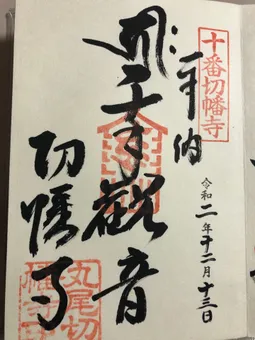 十番切幡寺
奉納
令和二年十二月十三日
千手觀音
切幡寺